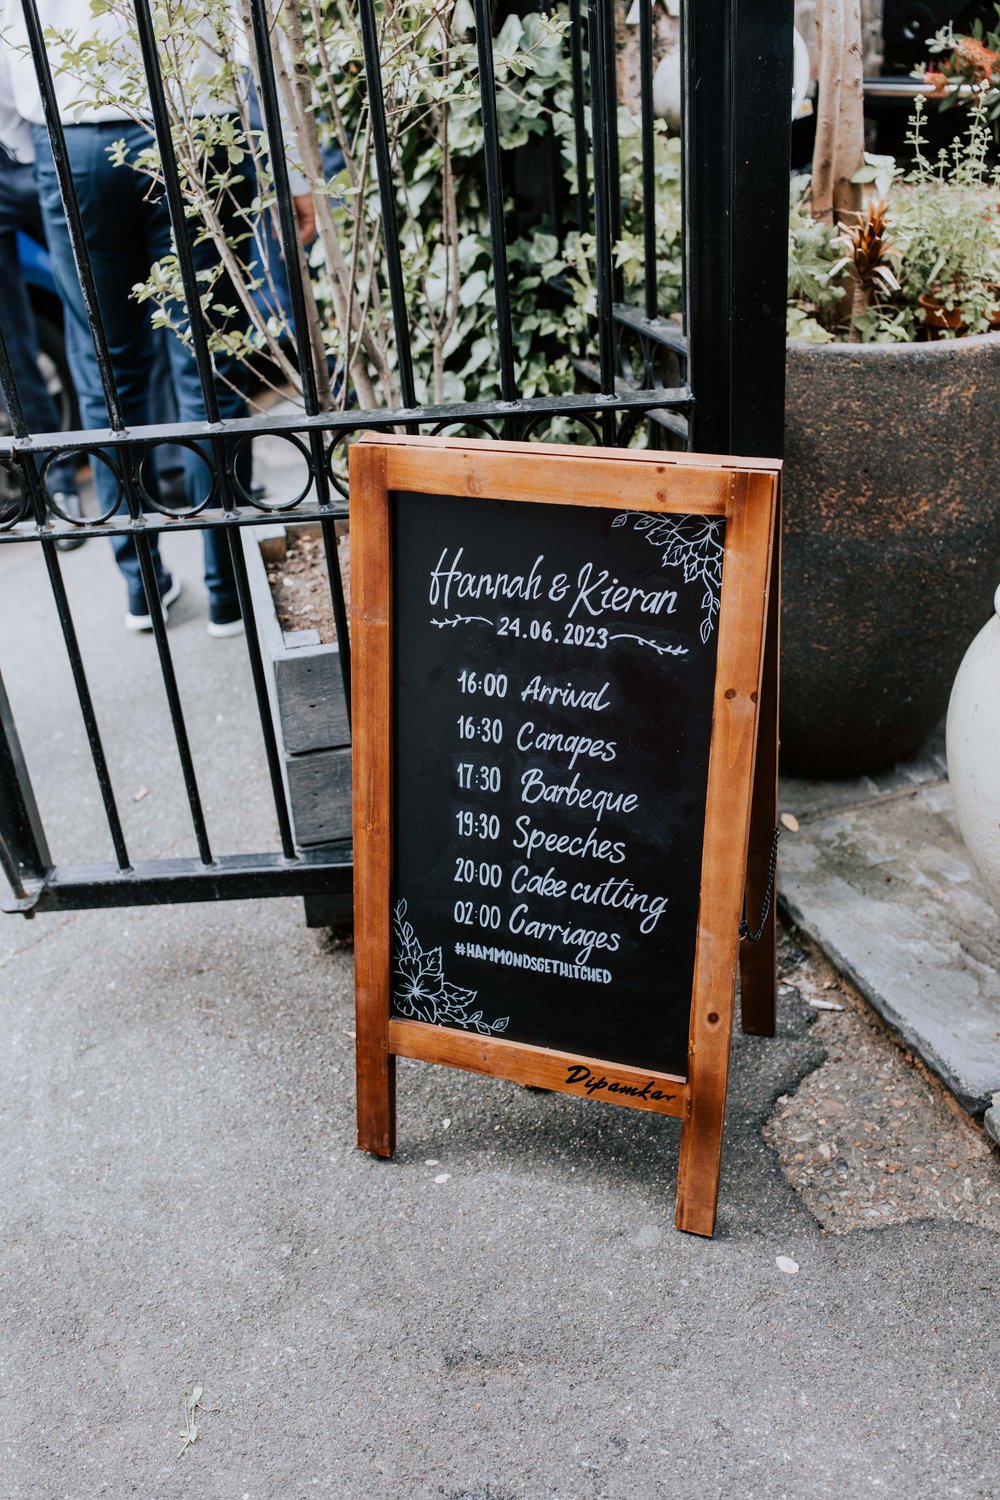 Hannah & Kieran
24.06.2023
16:00 Arrival
16:30 Canapes
17:30 Barbeque
19:30 Speeches
20:00 Cake cutting
02:00 Carriages
#HAMMONDSGETHITCHED
Dipamkar